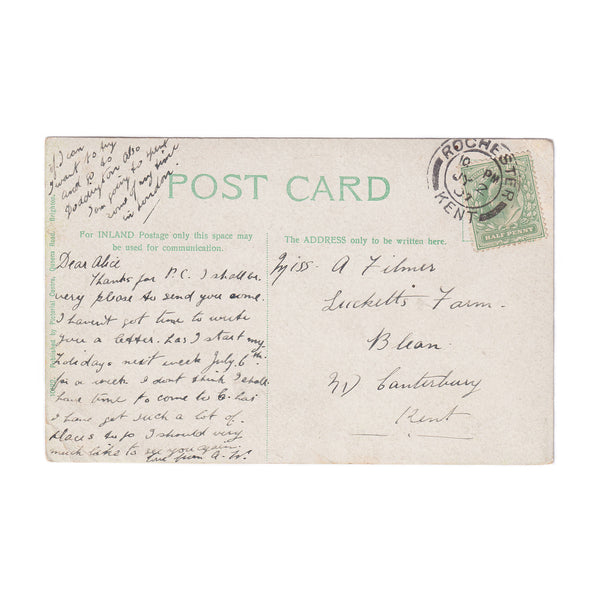 If I can
I want to try
and go to
Doddington also
I am going to spent
some of my time
in London
POST CARD
For INLAND Postage only this space may
be used for communication.
The ADDRESS only to be written here.
Published by Pictorial Centre, Brighton.
ROCHESTER
10 PM
JY 2
07
KENT
HALFPENNY
Dear Alice
Thanks for P.C. I shall be
very please to send you some.
I havent got time to write
you a letter. has I start my
holidays next week July 6th
for a week I dont think I shall
have time to come to C. has
I have got such a lot of
places to go I should very
much like to see you again.
love from A. W.
Miss. A Filmer
Luckett's Farm.
Blean.
Nr Canterbury
Kent